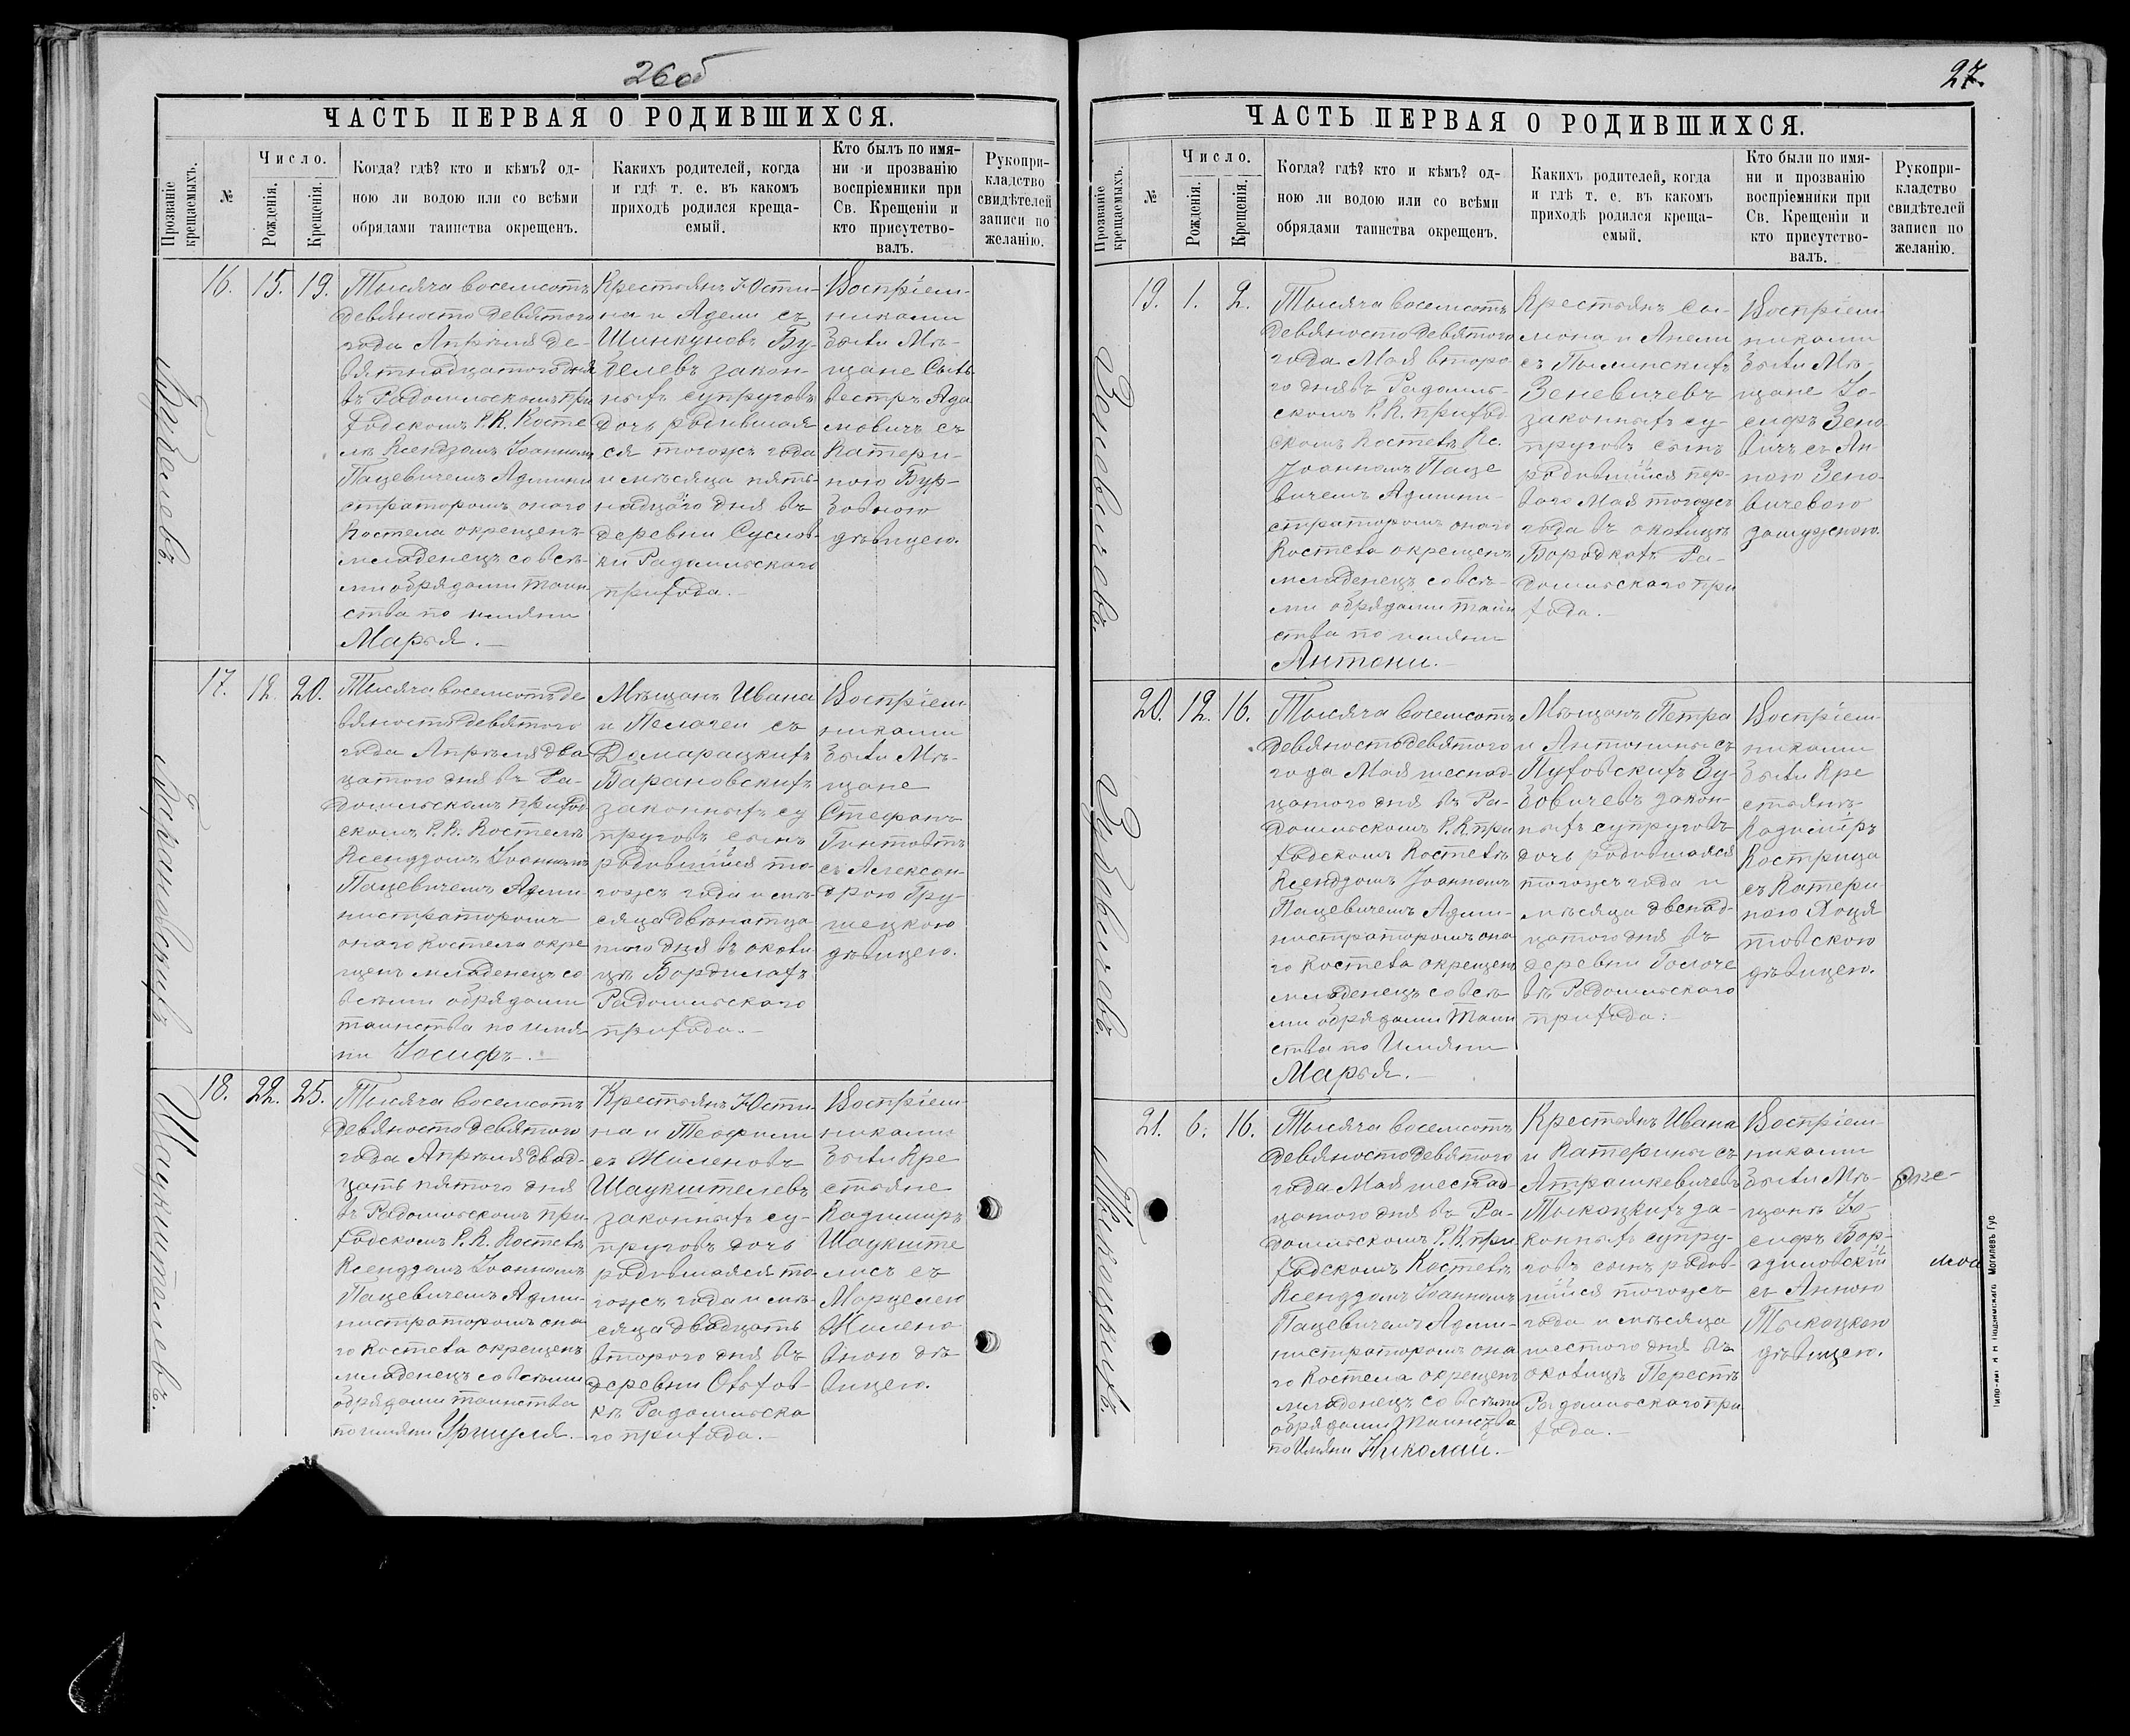 26об
ЧАСТЬ ПЕРВАЯ О РОДИВШИХСЯ.
Прозваніе крещаемыхъ.
№
Число.
Рожденія.
Крещенія.
Когда? гдѣ? кто и кѣмъ? од-
ною ли водою или со всѣми
обрядами таинства окрещенъ.
Какихъ родителей, когда
и гдѣ т. е. въ какомъ
приходѣ родился креща-
емый.
Кто былъ по имя-
ни и прозванію
воспріемники при
Св. Крещеніи и
кто присутство-
валъ.
Рукопри-
кладство
свидѣтелей
записи по
желанію.
16.
15.
19.
Тысяча восемсотъ
девяносто девятого
года Апрѣля де-
вятнадцатого дня
въ Радомльскомъ при
ходскомъ Р.К. Косте
лѣ Ксендзомъ Іоанномъ
Пацевичемъ Админи
страторомъ оного
Костела окрещенъ
младенецъ со всѣ-
ми обрядами таин
ства по имяни
Марья.
Крестьянъ Юсти-
на и Адели съ
Шинкуновъ Бу-
зелевъ закон-
ныхъ супруговъ
дочь родившая
ся тогожъ года
и мѣсяца пять-
надцаго дня въ
деревни Суслов-
ки Радомльского
прихода.
Воспріем-
никами
были Мѣ-
щане Силь
вестръ Ада
мовичъ съ
Катери-
ною Бур-
бовною
дѣвицею.
17.
18.
20.
Тысяча восемсотъ де
вяносто девятого
года Апрѣля два
цатого дня въ Ра-
домльскомъ приход
скомъ Р.К. Костелѣ
Ксендзомъ Іоанномъ
Пацевичемъ Адми-
нистраторомъ
оного Костела окре
щенъ младенецъ со
всѣми обрядами
таинства по имя
ни Іосифъ.
Барановскихъ
Мѣщанъ Ивана
и Пелагеи съ
Домарацкихъ
Барановскихъ
законныхъ су
пруговъ сынъ
родовшійся то-
гожъ года и мѣ-
сяца двѣнатца
того дня въ околи
цѣ Бордилахъ
Радомльского
прихода.
Воспріем-
никами
были Мѣ-
щане
Стефанъ
Гинтовтъ
съ Александ
рою Гру-
шецкою
дѣвицею.
18.
22.
25.
Шаукштелевъ.
Тысяча восемсотъ
девяносто девятого
года Апрѣля двад-
цать пятого дня
въ Радомльскомъ при
ходскомъ Р.К. Костелѣ
Ксендзомъ Іоанномъ
Пацевичемъ Адми-
нистраторомъ она
го Костела окрещенъ
младенецъ со всѣми
обрядами таинства
по имяни Уршуля.
Крестьянъ Юсти
на и Теофили
съ Жиленовъ
Шаукштелевъ
законныхъ су-
пруговъ дочь
родившаяся то
гожъ года и мѣ-
сяца двадцать
второго дня въ
деревни Ольхов-
кѣ Радомльска
го прихода.
Воспріем-
никами
были Кре
стьяне
Кадимиръ
Шаукште
лисъ съ
Марцелею
Жилено
вною дѣ
вицею.
27.
ЧАСТЬ ПЕРВАЯ О РОДИВШИХСЯ.
Прозваніе крещаемыхъ.
№
Число.
Рожденія.
Крещенія.
Когда? гдѣ? кто и кѣмъ? од-
ною ли водою или со всѣми
обрядами таинства окрещенъ.
Какихъ родителей, когда
и гдѣ т. е. въ какомъ
приходѣ родился креща-
емый.
Кто были по имя-
ни и прозванію
воспріемники при
Св. Крещеніи и
кто присутство-
валъ.
Рукопри-
кладство
свидѣтелей
записи по
желанію.
19.
1.
2.
Зеневичевъ.
Тысяча восемсотъ
девяносто девятого
года Мая второ
го дня въ Радомль-
скомъ Р.К. приход
скомъ Костелѣ Кс.
Іоанномъ Паце
вичемъ Админи-
страторомъ оного
Костела окрещенъ
младенецъ со всѣ-
ми обрядами таин
ства по имяни
Антони.
Крестьянъ Си-
мона и Анели
Зеневичевъ
законныхъ су-
пруговъ сынъ
родовшійся пер-
ваго Мая тогожъ
года въ околицѣ
Бородкахъ Ра-
домльского при
хода.
Воспріем
никами
были Мѣ-
щане Іо-
сифъ Зено
вичъ съ Ан-
ною Зено-
вичевою
замужною.
20.
12.
16.
Зубовичевъ.
Тысяча восемсотъ
девяносто девятого
года Мая шеснад-
цатого дня въ Ра-
домльскомъ Р.К. при
ходскомъ Костелѣ
Ксендзомъ Іоанномъ
Пацевичемъ Адми-
нистраторомъ она
го Костела окрещенъ
младенецъ со всѣ-
ми обрядами Таин
ства по Имяни
Марья.
Мѣщанъ Петра
и Антонины съ
Пуховскихъ Зу-
бовичевъ закон-
ныхъ супруговъ
дочь родовшаяся
тогожъ года и
мѣсяца двенад-
цатого дня въ
деревни Голоче
вѣ Радомльского
прихода.
Воспріем-
никами
были Кре
стьянъ-
Кадимиръ
Кострица
съ Катери
ною Хоця
товскою
дѣвицею.
21.
6.
16.
Тыкоцкихъ.
Тысяча восемсотъ
девяносто девятого
года Мая шестад-
цатого дня въ Ра-
домльскомъ Р.К. при
ходскомъ Костелѣ
Ксендзомъ Іоанномъ
Пацевичемъ Адми-
нистраторомъ она
го Костела окрещенъ
младенецъ со всѣми
обрядами Таинства
по Имяни Николай.
Крестьянъ Ивана
и Катерины съ
Атрашкевичевъ
Тыкоцкихъ за-
конныхъ супру-
говъ сынъ родов-
шійся тогожъ
года и мѣсяца
шестого дня въ
околицѣ Перестѣ
Радомльского при
хода.
Воспріем-
никами
были Мѣ-
щанъ Іо-
сифъ Бор-
диловскій
съ Анною
Тыкоцкою
дѣвицею.